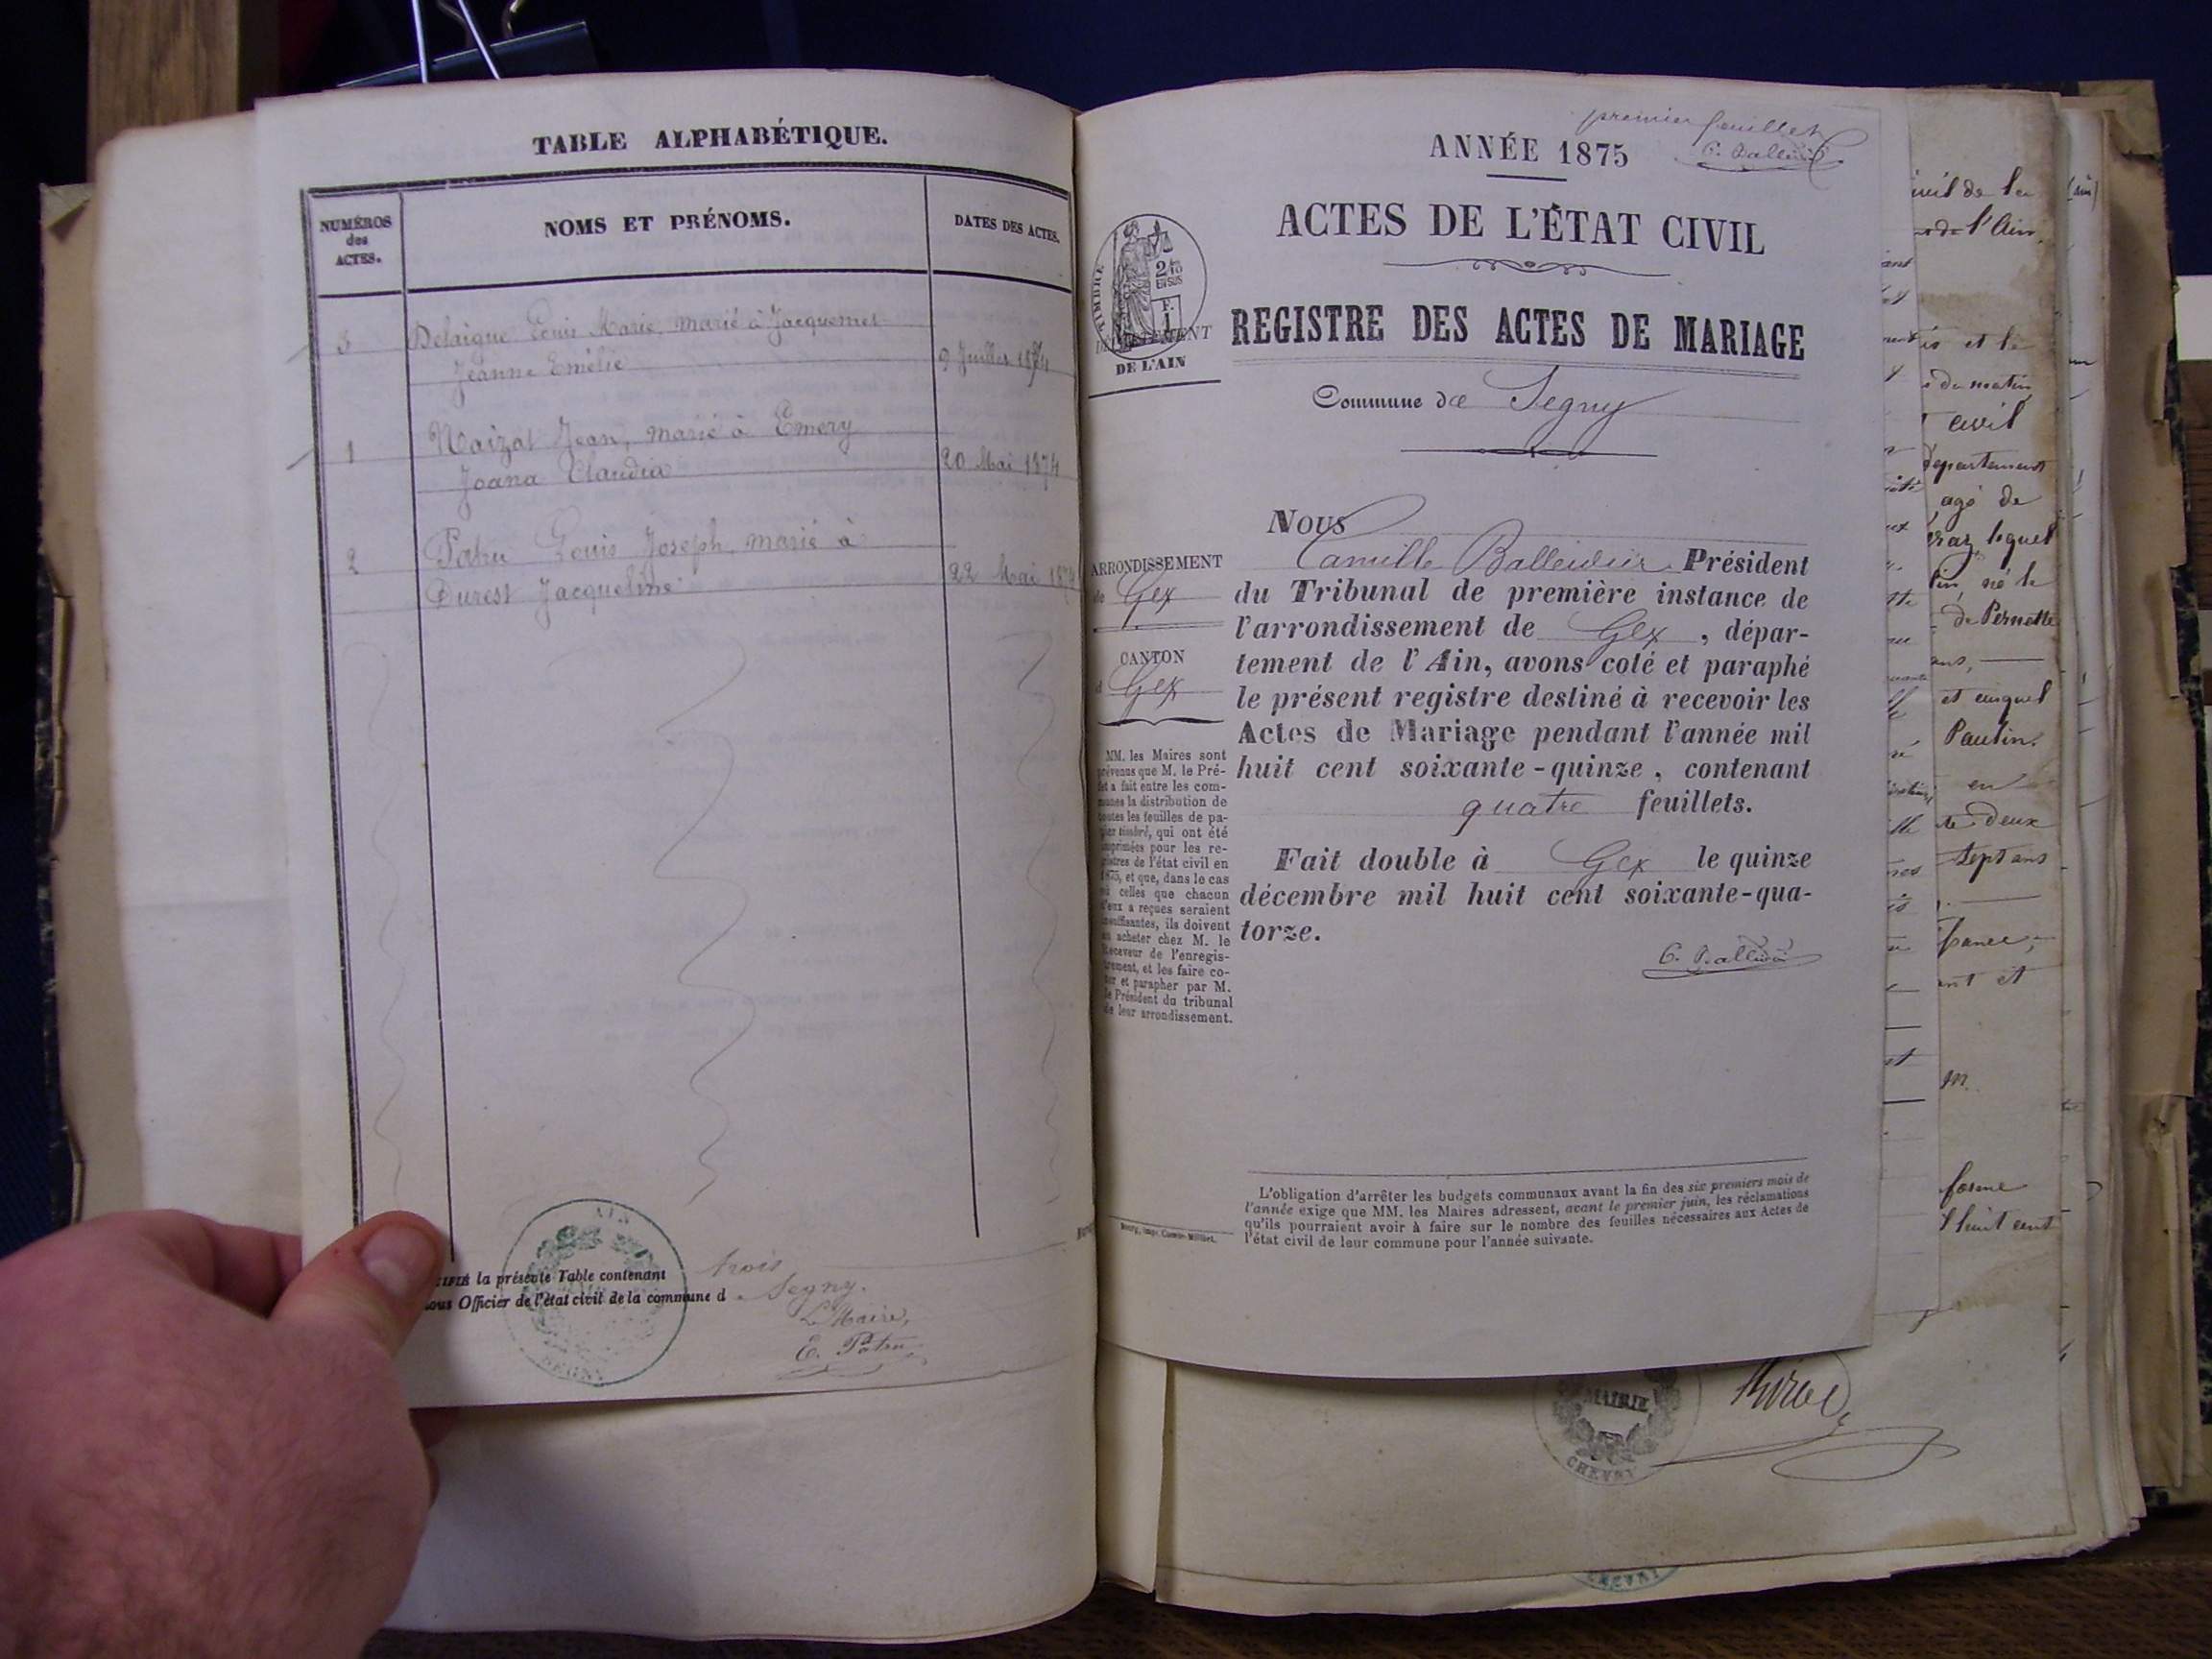 TABLE ALPHABÉTIQUE.
NUMÉROS
des
ACTES.
NOMS ET PRÉNOMS.
DATES DES ACTES.
3 Delaigue Louis Marie, marié à Jacquemet
Jeanne Emélie 9 Juillet 1874
1 Naizat Jean, marié à Emery
Joana Claudia 20 Mai 1874
2 Patru Louis Joseph, marié à
Durest Jacqueline 22 Mai 1874
la présente Table contenant trois
Officier de l'état civil de la commune d Segny.
Le Maire,
E. Patru
AIN
SEGNY
premier feuillet
ANNÉE 1875
ACTES DE L'ÉTAT CIVIL
TIMBRE
2/10
EN SUS
F.
1
DÉPARTEMENT
DE L'AIN
REGISTRE DES ACTES DE MARIAGE
Commune de Segny
ARRONDISSEMENT
de Gex
CANTON
d Gex
MM. les Maires sont
prévenus que M. le Pré-
fet a fait entre les com-
munes la distribution de
toutes les feuilles de pa-
pier timbré, qui ont été
imprimées pour les re-
gistres de l'état civil en
1875, et que, dans le cas
où celles que chacun
d'eux a reçues seraient
insuffisantes, ils doivent
en acheter chez M. le
Receveur de l'enregis-
trement, et les faire co-
ter et parapher par M.
le Président du tribunal
de leur arrondissement.
Nous
Camille Président
du Tribunal de première instance de
l'arrondissement de Gex, dépar-
tement de l'Ain, avons coté et paraphé
le présent registre destiné à recevoir les
Actes de Mariage pendant l'année mil
huit cent soixante-quinze, contenant
quatre feuillets.
Fait double à Gex le quinze
décembre mil huit cent soixante-qua-
torze.
L'obligation d'arrêter les budgets communaux avant la fin des six premiers mois de
l'année exige que MM. les Maires adressent, avant le premier juin, les réclamations
qu'ils pourraient avoir à faire sur le nombre des feuilles nécessaires aux Actes de
l'état civil de leur commune pour l'année suivante.
de la
de l'Ain
et le
du matin
civil
département
agé de
né le
de Pernette
ans,
et auquel
Paulin.
en
deux
sept ans
et
forme
huit cent
MAIRIE
CHEVRY
CHEVRY